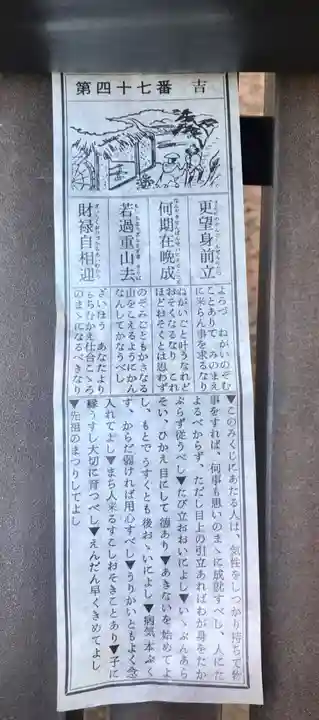 第四十七番 吉
更望身前立
何期在晩成
若過重山去
財禄自相迎
よろづ ねがいのぞむ
ことありて みのまえ
に来らん事を求るなり
ねがいごと叶うなれど
おそくなるなり これ
ほどおそくとは思わず
のぞみごともかさなる
山をこえるようにかん
なんしてかなうべし
ざいほう あなたより
もちむかえ仕合こゝろ
のまゝになるべきなり
▼このみくじにあたる人は、気性をしつかり持ちて物
事をすれば、何事も思いのまゝに成就すべし、人にた
よるべからず、ただし目上の引立あればわが身をたか
ぶらず従うべし▼たび立おおいによし▼いゝぶんあら
そい、ひかえ目にして
あり▼あきないを始めてよ
し、もとでうすくとも後おゝいによし▼病気 本ぷく
す、からだ弱ければ用心すべし▼うりかいともよく念
入れてよし▼まち人来るすこしおそきことあり▼子に
縁うすし大切に育つべし▼えんだん早くきめてよし
▼先祖のまつりしてよし